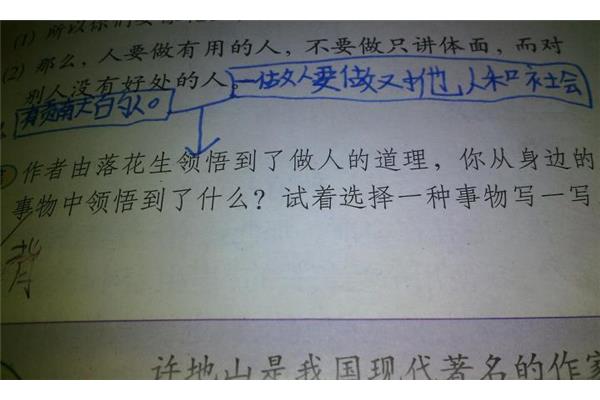 (1) 所以你们要
(2) 那么，人要做有用的人，不要做只讲体面，而对
别人没有好处的人。
做人要做对他人和社会
有贡献的人。
作者由落花生领悟到了做人的道理，你从身边的
事物中领悟到了什么？试着选择一种事物写一写
背
许地山是我国现代著名的作家